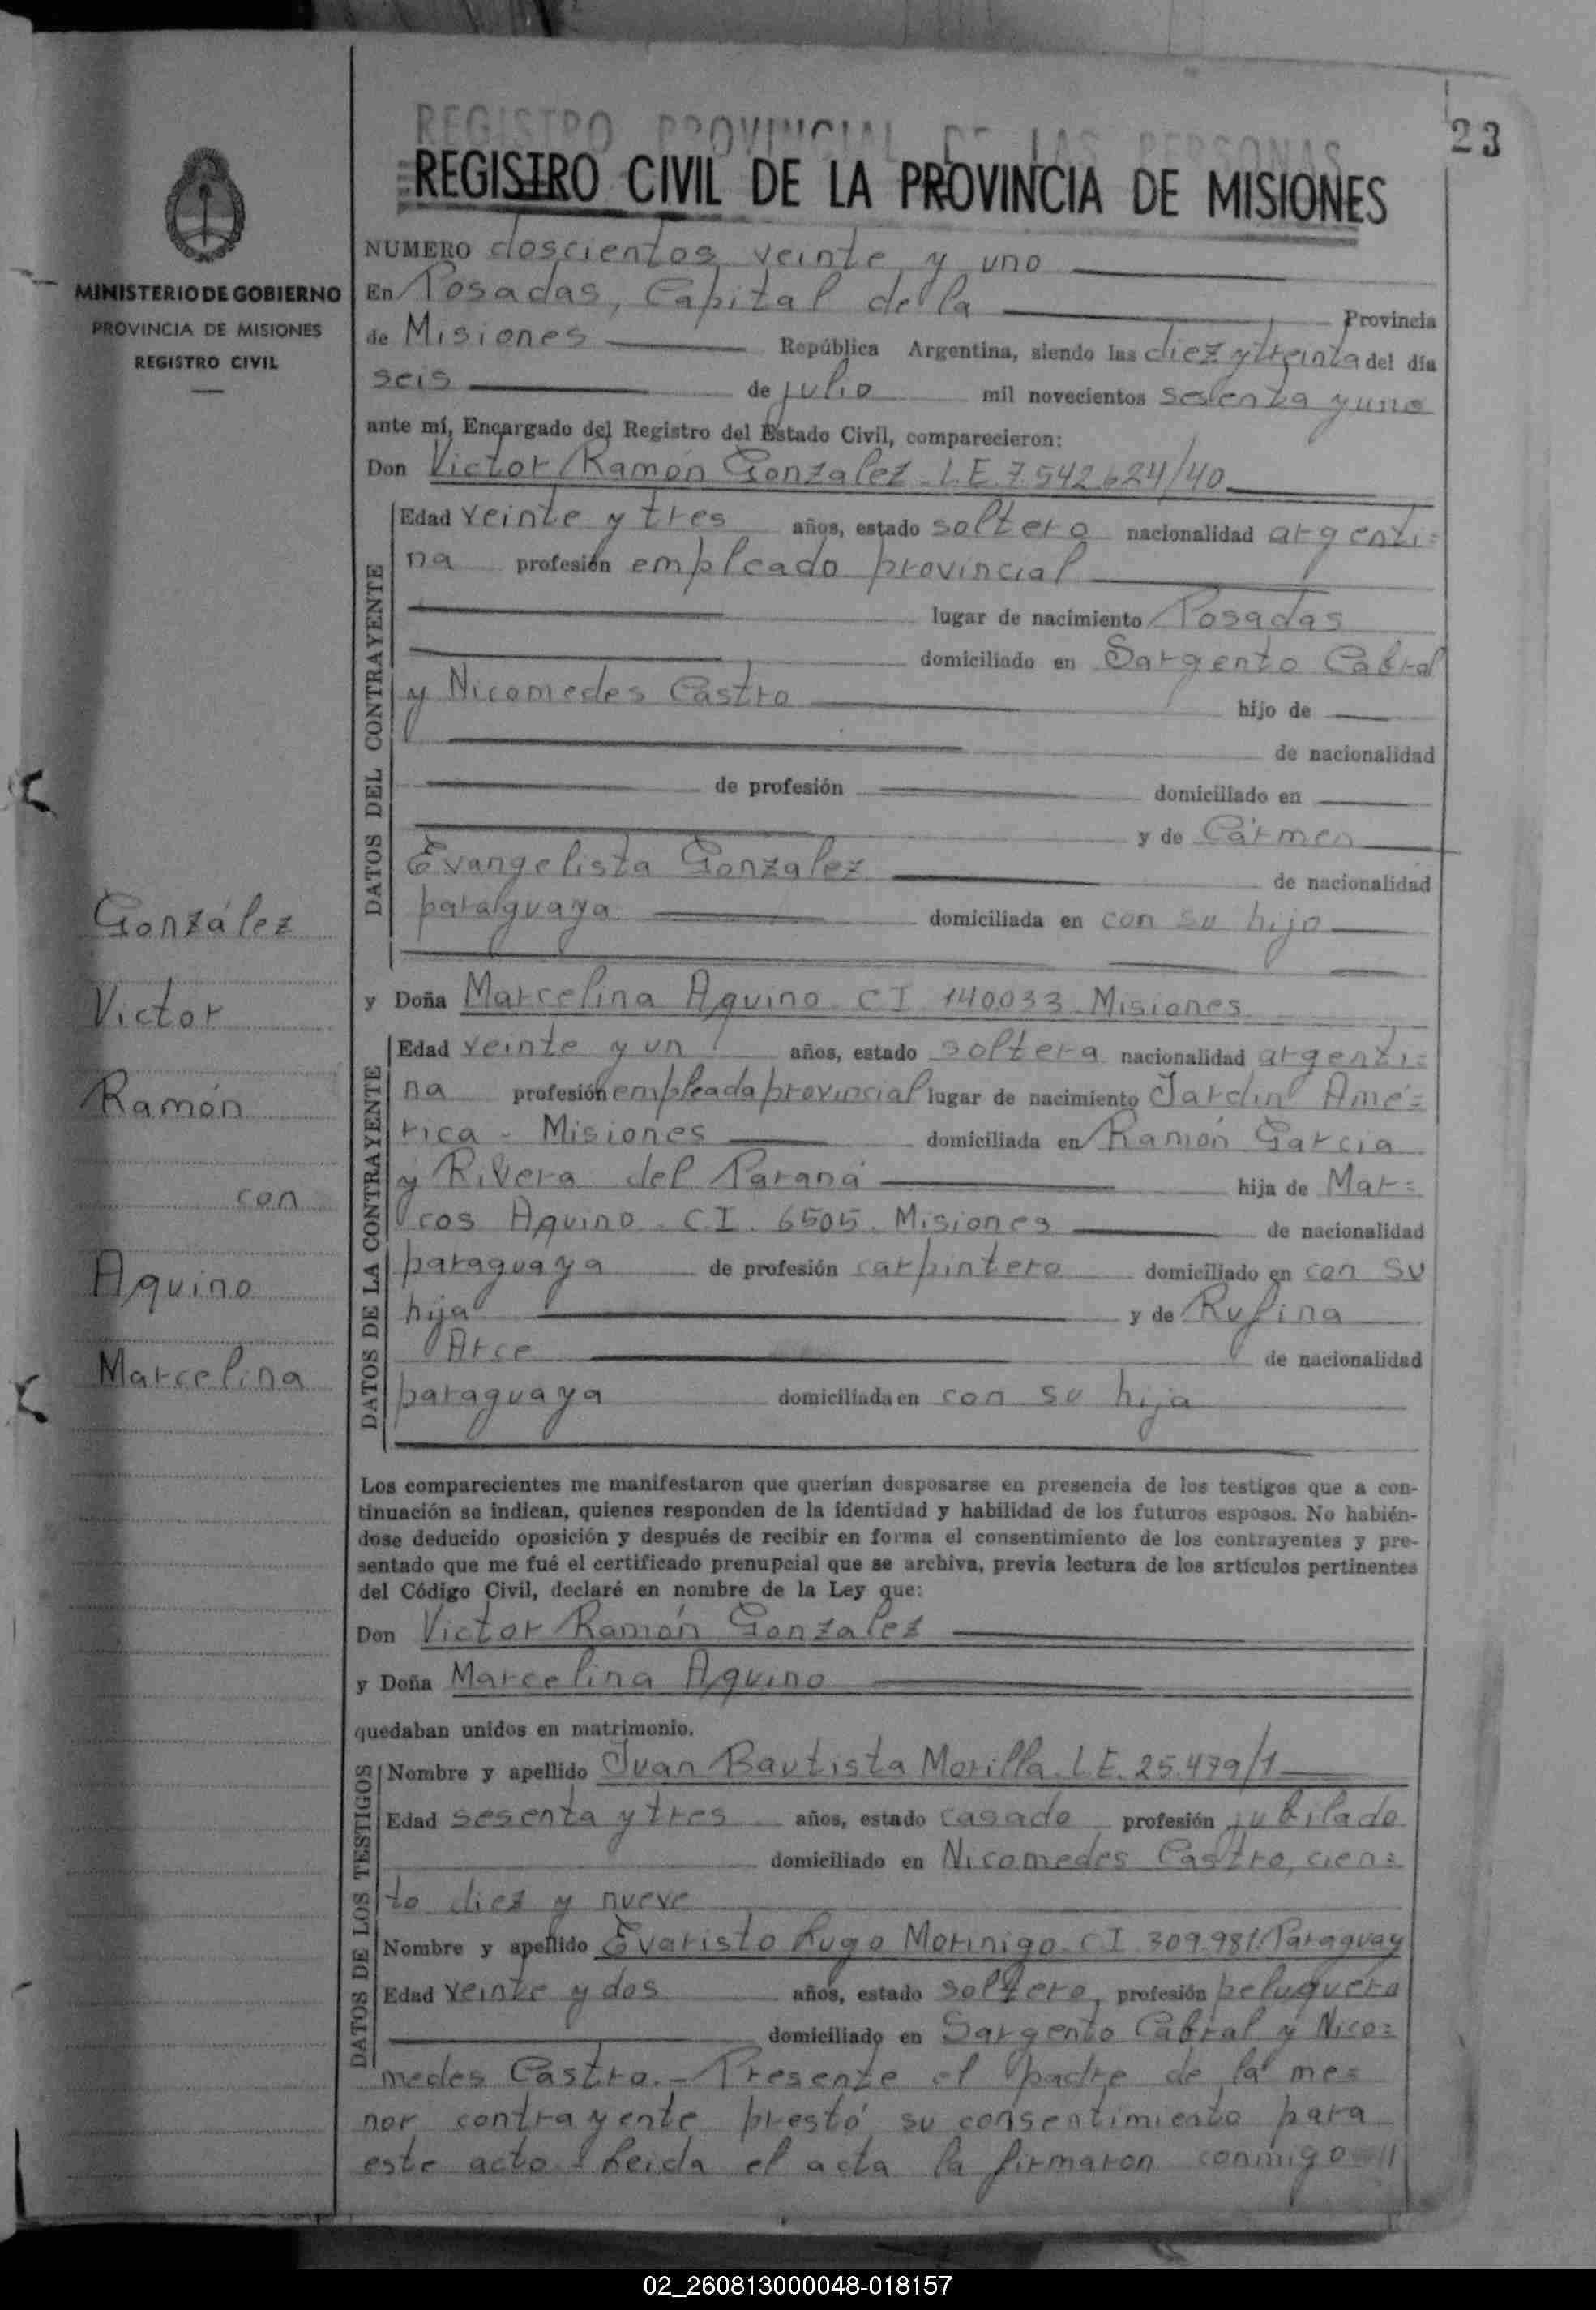 23
REGISTRO PROVINCIAL DE LAS PERSONAS
REGISTRO CIVIL DE LA PROVINCIA DE MISIONES
MINISTERIO DE GOBIERNO
PROVINCIA DE MISIONES
REGISTRO CIVIL
González
Victor
Ramón
con
Aquino
Marcelina
NUMERO doscientos veinte y uno
En Posadas, Capital de la Provincia
de Misiones República Argentina, siendo las diez y treinta del día
seis de julio mil novecientos sesenta y uno
ante mí, Encargado del Registro del Estado Civil, comparecieron:
Don Victor Ramón Gonzalez - L E. 7.542.624/40
DATOS DEL CONTRAYENTE
Edad veinte y tres años, estado soltero nacionalidad argenti=
na profesión empleado provincial
lugar de nacimiento Posadas
domiciliado en Sargento Cabral
y Nicomedes Castro hijo de
de nacionalidad
de profesión domiciliado en
y de Cármen
Evangelista Gonzalez de nacionalidad
paraguaya domiciliada en con su hijo
y Doña Marcelina Aquino - C I. 140033 - Misiones
DATOS DE LA CONTRAYENTE
Edad veinte y un años, estado soltera nacionalidad argenti=
na profesión empleada provincial lugar de nacimiento Jardin Amé=
rica - Misiones domiciliada en Ramón García
y Rivera del Paraná hija de Mar=
cos Aquino - C.I. 6505 - Misiones de nacionalidad
paraguaya de profesión carpintero domiciliado en con su
hija y de Rufina
Arce de nacionalidad
paraguaya domiciliada en con su hija
Los comparecientes me manifestaron que querían desposarse en presencia de los testigos que a con-
tinuación se indican, quienes responden de la identidad y habilidad de los futuros esposos. No habién-
dose deducido oposición y después de recibir en forma el consentimiento de los contrayentes y pre-
sentado que me fué el certificado prenupcial que se archiva, previa lectura de los artículos pertinentes
del Código Civil, declaré en nombre de la Ley que:
Don Victor Ramón Gonzalez
y Doña Marcelina Aquino
quedaban unidos en matrimonio.
DATOS DE LOS TESTIGOS
Nombre y apellido Juan Bautista Morilla - L E. 25.479/1
Edad sesenta y tres años, estado casado profesión jubilado
domiciliado en Nicomedes Castro, cien=
to diez y nueve
Nombre y apellido Evaristo Lugo Morinigo - C I 309.981. Paraguay
Edad veinte y dos años, estado soltero, profesión peluquero
domiciliado en Sargento Cabral y Nico=
medes Castro. - Presente el padre de la me=
nor contrayente prestó su consentimiento para
este acto - Leida el acta la firmaron conmigo //
02_260813000048-018157